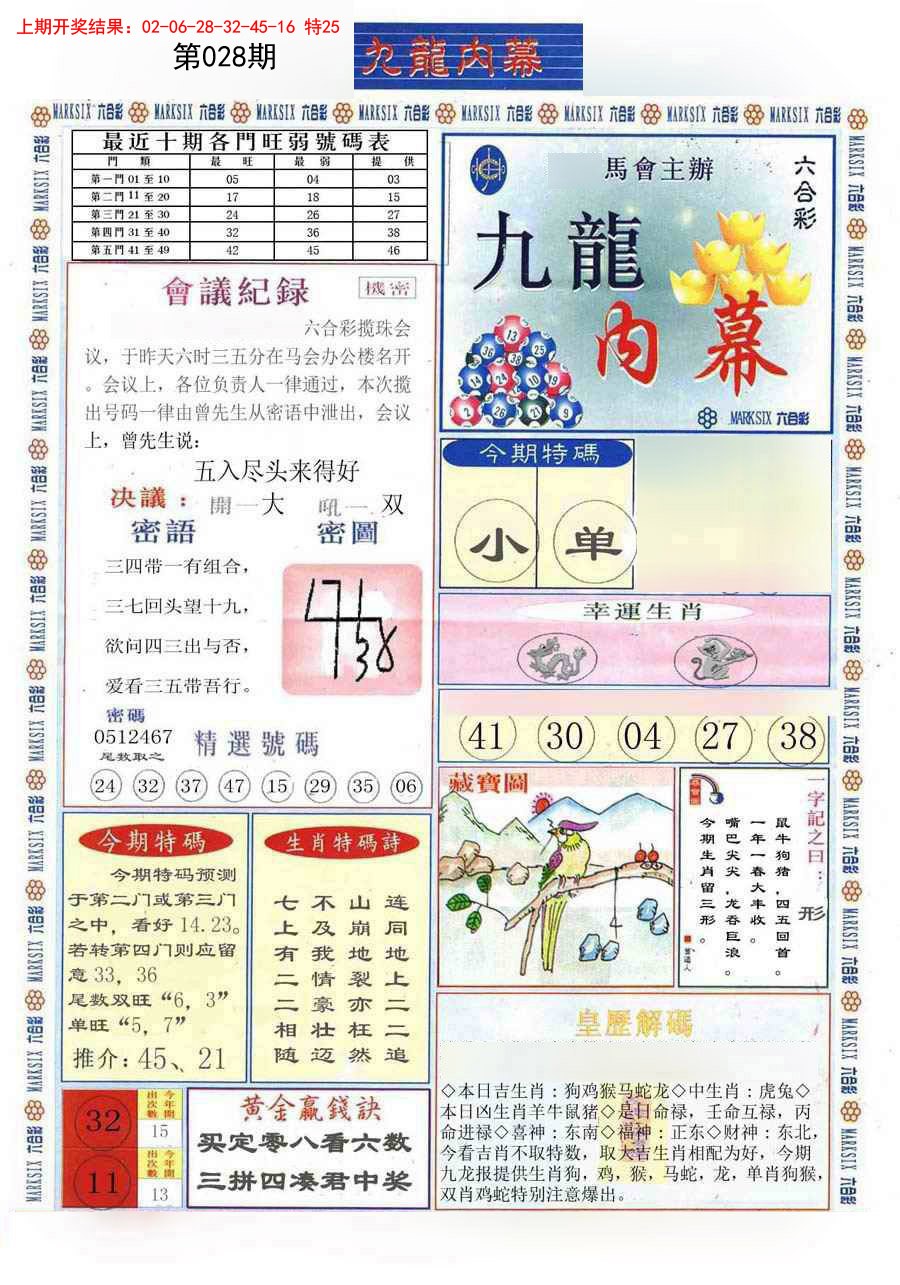 上期开奖结果：02-06-28-32-45-16 特25
第028期
九龍内幕
最近十期各門旺弱號碼表
門 類 最 旺 最 弱 提 供
第一門 01 至 10 05 04 03
第二門 11 至 20 17 18 15
第三門 21 至 30 24 26 27
第四門 31 至 40 32 36 38
第五門 41 至 49 42 45 46
會議紀録
機密
六合彩揽珠会
议，于昨天六时三五分在马会办公楼名开
。会议上，各位负责人一律通过，本次揽
出号码一律由曾先生从密语中泄出，会议
上，曾先生说：
五入尽头来得好
决議： 開一大 吼一 双
密語 密圖
三四带一有组合，
三七回头望十九，
欲问四三出与否，
爱看三五带吾行。
密碼
0512467
尾数取之
精選號碼
24 32 37 47 15 29 35 06
馬會主辦
六合彩
九龍
内幕
MARKSIX 六合彩
今期特碼
小 单
幸運生肖
41 30 04 27 38
藏寶圖
一字記之曰：形
鼠牛狗猪，四五回首。
一年一春大丰收。
嘴巴尖尖，龙吞巨浪。
今期生肖留三形。
今期特碼
今期特码预测
于第二门或第三门
之中，看好 14.23。
若转第四门则应留
意 33，36
尾数双旺“6，3”
单旺“5，7”
推介：45、21
生肖特碼詩
连同地上二二追
山崩地裂亦枉然
不及我情豪壮迈
七上有二二相随
皇歷解碼
◇本日吉生肖：狗鸡猴马蛇龙◇中生肖：虎兔◇
本日凶生肖羊牛鼠猪◇是日命禄，壬命互禄，丙
命进禄◇喜神：东南◇福神：正东◇财神：东北，
今看吉肖不取特数，取大吉生肖相配为好，今期
九龙报提供生肖狗，鸡，猴，马蛇，龙，单肖狗猴，
双肖鸡蛇特别注意爆出。
32 今年開出次數 15
11 今年開出次數 13
黄金赢錢訣
买定零八看六数
三拼四凑君中奖